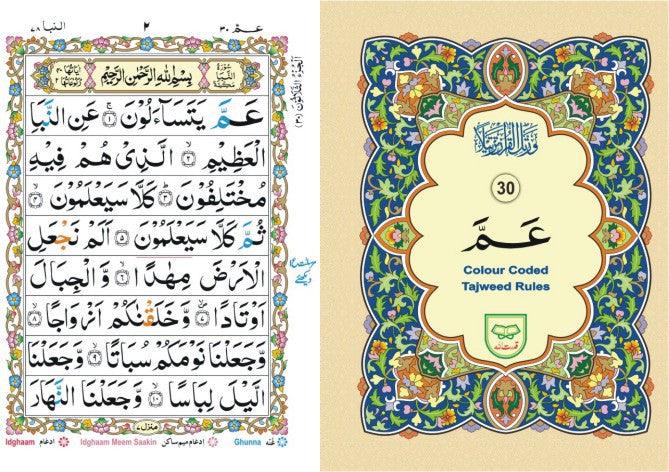 عمّ ٣٠
٢
النبا ٧٨
سُورَةُ النَّبَا مَكِّيَّةٌ
بِسْمِ اللّٰهِ الرَّحْمٰنِ الرَّحِيْمِ
عَمَّ يَتَسَآءَلُوْنَ ۚ ١ عَنِ النَّبَاِ
الْعَظِيْمِ ٢ الَّذِىْ هُمْ فِيْهِ
مُخْتَلِفُوْنَ ٣ كَلَّا سَيَعْلَمُوْنَ ٤
ثُمَّ كَلَّا سَيَعْلَمُوْنَ ٥ اَلَمْ نَجْعَلِ
الْاَرْضَ مِهٰدًا ٦ وَّالْجِبَالَ
اَوْتَادًا ٧ وَّخَلَقْنٰكُمْ اَزْوَاجًا ٨
وَّجَعَلْنَا نَوْمَكُمْ سُبَاتًا ٩ وَّجَعَلْنَا
الَّيْلَ لِبَاسًا ١٠ وَّجَعَلْنَا النَّهَارَ
منزل ٧
اَلْجُزْءُ الثَّلَاثُوْنَ (٣٠)
Idghaam ادغام Idghaam Meem Saakin ادغام ميم ساكن Ghunna غُنّه
وَرَتِّلِ الْقُرْاٰنَ تَرْتِيْلًا
30
عَمَّ
Colour Coded
Tajweed Rules
قدرت الله